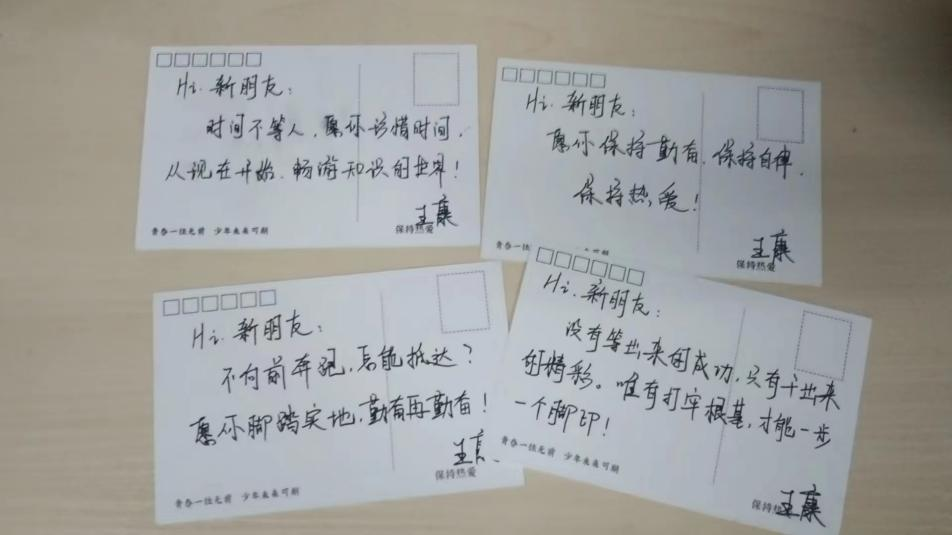 Hi. 新朋友：
时间不等人，愿你珍惜时间，
从现在开始、畅游知识的世界！
王康
青春一往无前 少年未来可期
保持热爱
Hi. 新朋友：
愿你保持勤奋、保持自律、
保持热爱！
王康
保持热爱
Hi. 新朋友：
不向前奔跑，怎能抵达？
愿你脚踏实地，勤奋再勤奋！
王康
青春一往无前 少年未来可期
保持热爱
Hi. 新朋友：
没有等出来的成功，只有干出来
的精彩。唯有打牢根基，才能一步
一个脚印！
王康
青春一往无前 少年未来可期
保持热